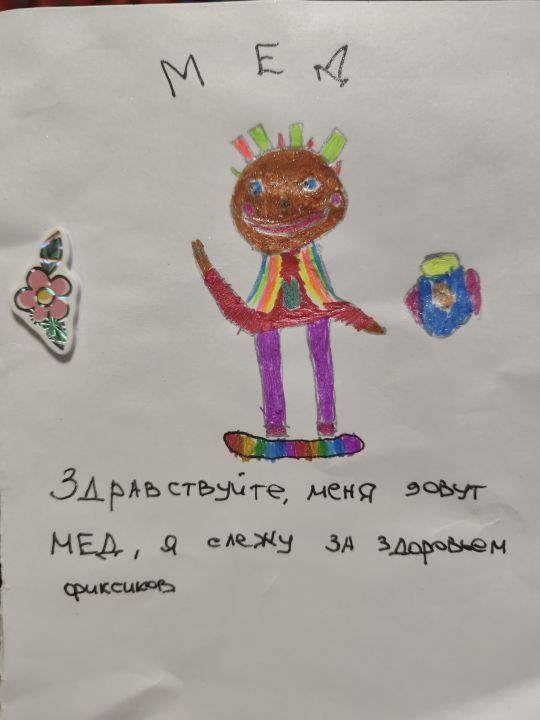 МЕД
Здравствуйте, меня зовут
МЕД, я слежу за здоровьем
фиксиков